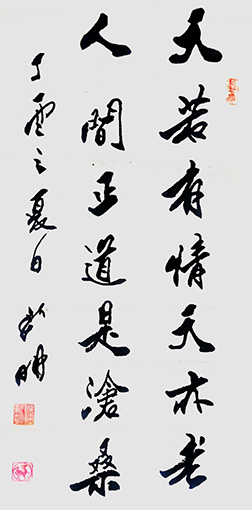 天若有情天亦老
人間正道是滄桑
丁之夏日明